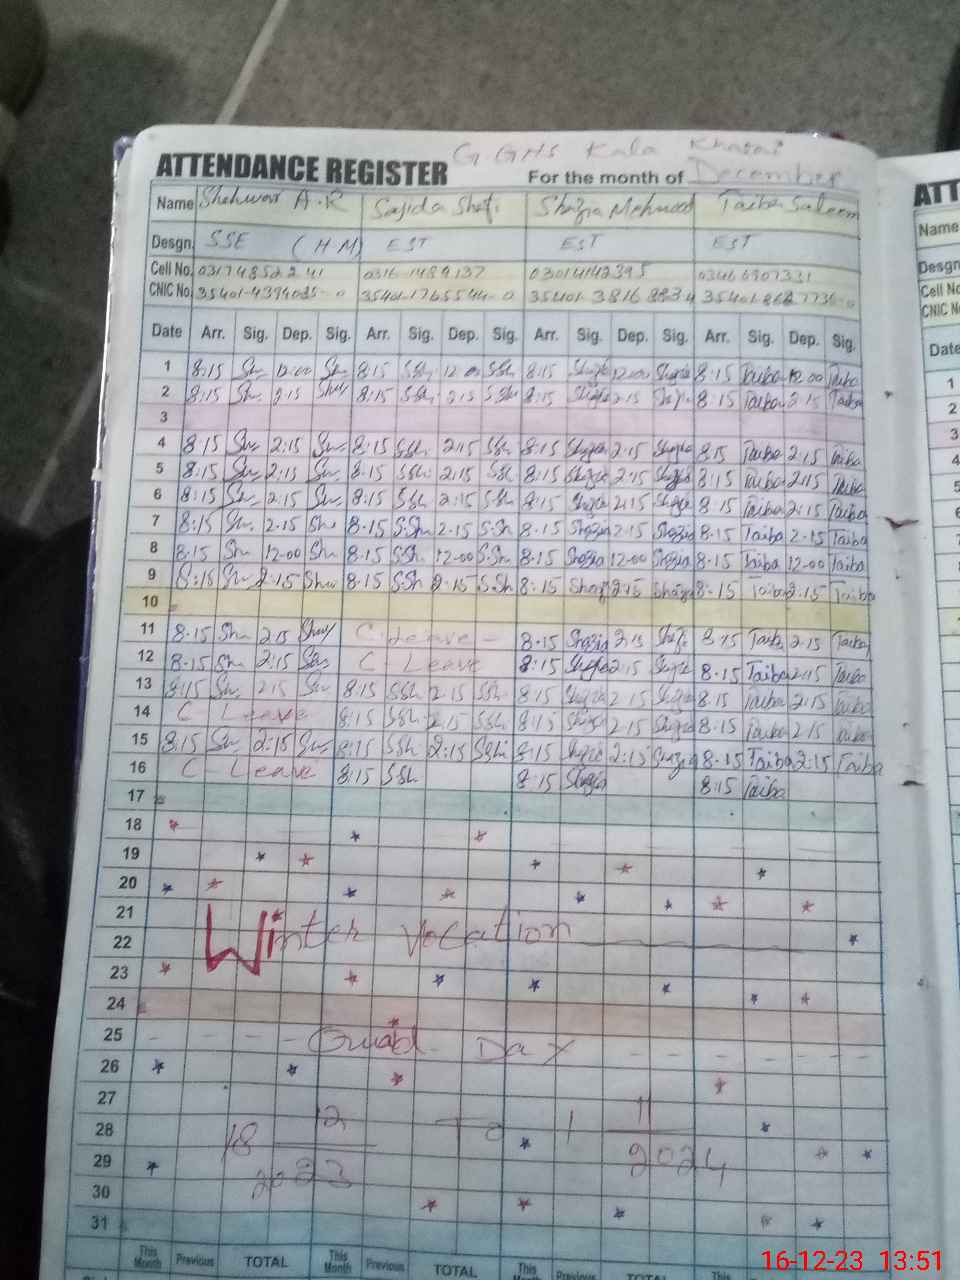 G GHS Kala Khatai
ATTENDANCE REGISTER For the month of December
Name Shehwar A.R Sajida Shafi Shazia Mehmood Taiba Saleem
Desgn. SSE (HM) EST EST EST
Cell No. 0316-1484137 03014142395 03466907331
CNIC No.
Date Arr. Sig. Dep. Sig. Arr. Sig. Dep. Sig. Arr. Sig. Dep. Sig. Arr. Sig. Dep. Sig.
1 8:15 Sh 12:00 Sh 8:15 SSh 12:00 SSh 8:15 Shazia 12:00 Shazia 8:15 Taiba 12:00 Taiba
2 8:15 Sh 2:15 8:15 SSh 2:15 SSh 8:15 Shazia 2:15 Shazia 8:15 Taiba 2:15 Taiba
3
4 8:15 2:15 8:15 SSh 2:15 SSh 8:15 Shazia 2:15 Shazia 8:15 Taiba 2:15 Taiba
5 8:15 2:15 8:15 SSh 2:15 SSh 8:15 Shazia 2:15 Shazia 8:15 Taiba 2:15 Taiba
6 8:15 2:15 8:15 SSh 2:15 SSh 8:15 Shazia 2:15 Shazia 8:15 Taiba 2:15 Taiba
7 8:15 Sh 2-15 Sh 8-15 S.Sh 2-15 S.Sh 8-15 Shazia 2-15 Shazia 8-15 Taiba 2-15 Taiba
8 8:15 Sh 12-00 Sh 8-15 SSh 12-00 S.Sh 8-15 Shazia 12-00 Shazia 8-15 Taiba 12-00 Taiba
9 8:15 Sh 2:15 8:15 SSh 2:15 S.Sh 8:15 2:15 8:15 Taiba 2:15 Taiba
10
11 8.15 Sh 2:15 C-Leave - 8.15 Shazia 2:15 8:15 Taiba 2:15 Taiba
12 8.15 Sh 2:15 C - Leave 8:15 2:15 8.15 Taiba 2:15 Taiba
13 8:15 Sh 2:15 8:15 SSh 2:15 SSh 8:15 Shazia 2:15 Shazia 8:15 Taiba 2:15 Taiba
14 C - Leave 8:15 SSh 2:15 SSh 8:15 Shazia 2:15 Shazia 8:15 Taiba 2:15 Taiba
15 8:15 2:15 8:15 SSh 2:15 SSh 8:15 2:15 Shazia 8.15 Taiba 2:15 Taiba
16 C - Leave 8:15 SSh 8:15 Shazia 8:15 Taiba
17
18
19
20
21
22 Winter Vocation
23
24
25 Quaid Day
26
27
28 18 12 To 1 11
29 2023 2024
30
31
This Month Previous TOTAL This Month Previous TOTAL This Month Previous TOTAL This
ATT
Name
Desgn
Cell No
CNIC No
Date
1
2
3
4
5
6
7
8
9
10
11
12
13
14
15
16-12-23 13:51